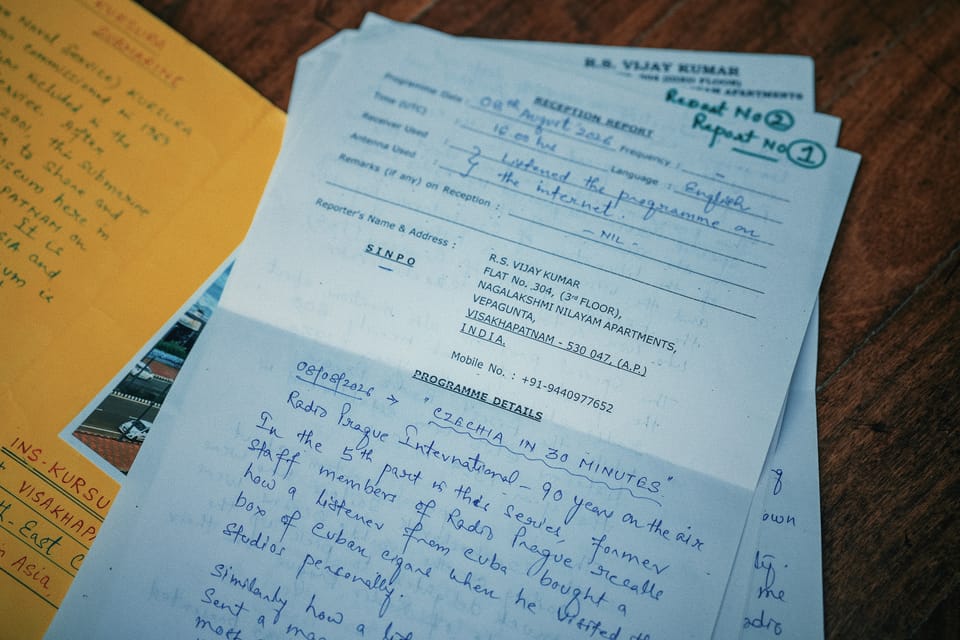 KURSURA
SUBMARINE
Naval Service) KURSURA
commissioned in 1969
included in the
service. After
2001, this submarine
to shore and
museum here in
PATNAM on
It is
ASIA and
is
INS-KURSU
VISAKHAP
th-East C
Asia,
R.S. VIJAY KUMAR
304 (3RD FLOOR)
AM APARTMENTS
Report No 2
Report No 1
RECEPTION REPORT
Programme Date : 08th August 2026 Frequency : -
Time (UTC) : 1600 hrs Language : English
Receiver Used : } Listened the programme on
Antenna Used : } the internet.
Remarks (if any) on Reception : - NIL -
Reporter's Name & Address :
SINPO
R.S. VIJAY KUMAR
FLAT No. 304, (3rd FLOOR),
NAGALAKSHMI NILAYAM APARTMENTS,
VEPAGUNTA,
VISAKHAPATNAM - 530 047. (A.P.)
INDIA.
Mobile No. : +91-9440977652
PROGRAMME DETAILS
08/08/2026 → "CZECHIA IN 30 MINUTES"
Radio Prague International - 90 years on the air
In the 5th part in their series, former
staff members of Radio Prague recalls
how a listener from Cuba bought a
box of Cuban cigars when he visited the
studios personally.
Similarly how a
sent a
most
own
ly.
me
adio